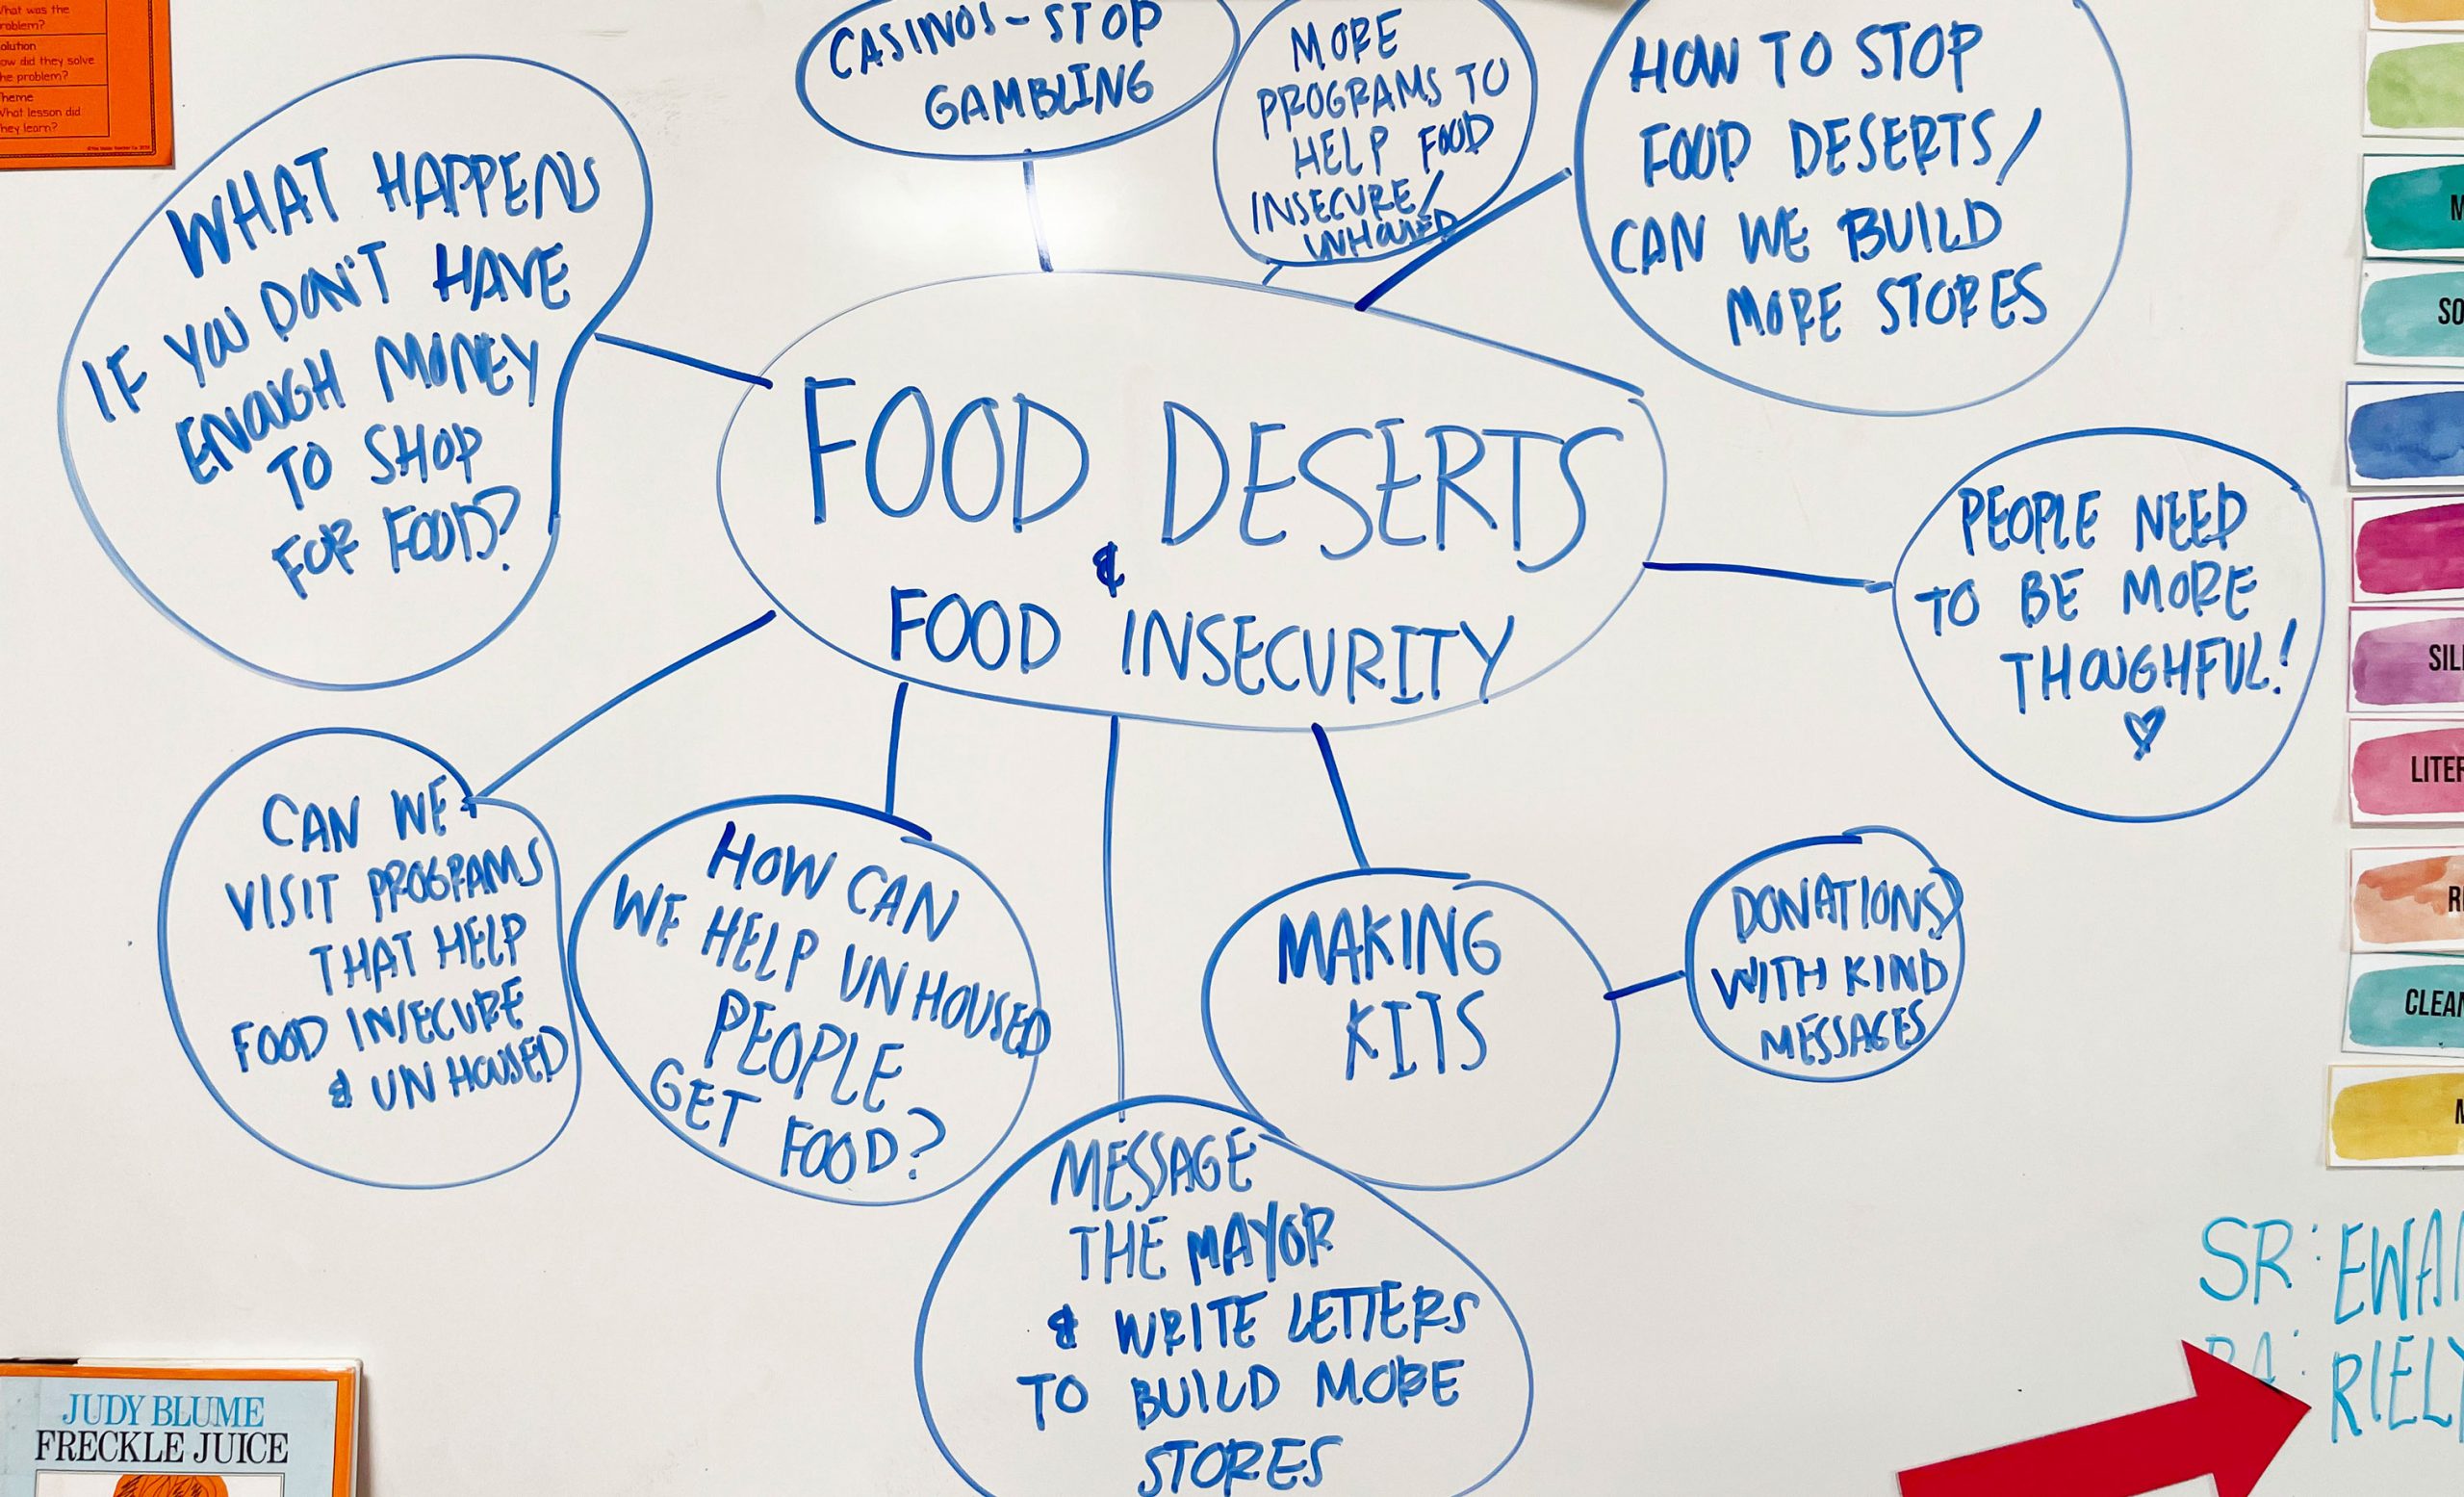 What was the
problem?
olution
ow did they solve
he problem?
heme
What lesson did
hey learn?
CASINOS - STOP
GAMBLING
MORE
PROGRAMS TO
HELP FOOD
INSECURE/
UNHOUSED
HOW TO STOP
FOOD DESERTS/
CAN WE BUILD
MORE STORES
WHAT HAPPENS
IF YOU DON'T HAVE
ENOUGH MONEY
TO SHOP
FOR FOOD?
FOOD DESERTS
&
FOOD INSECURITY
PEOPLE NEED
TO BE MORE
THOUGHFUL!
CAN WE
VISIT PROGRAMS
THAT HELP
FOOD INSECURE
& UNHOUSED
HOW CAN
WE HELP UNHOUSED
PEOPLE
GET FOOD?
MAKING
KITS
DONATIONS
WITH KIND
MESSAGES
MESSAGE
THE MAYOR
& WRITE LETTERS
TO BUILD MORE
STORES
M
SO
SIL
LITER
R
CLEAN
M
SR: EWA
RIELY
JUDY BLUME
FRECKLE JUICE